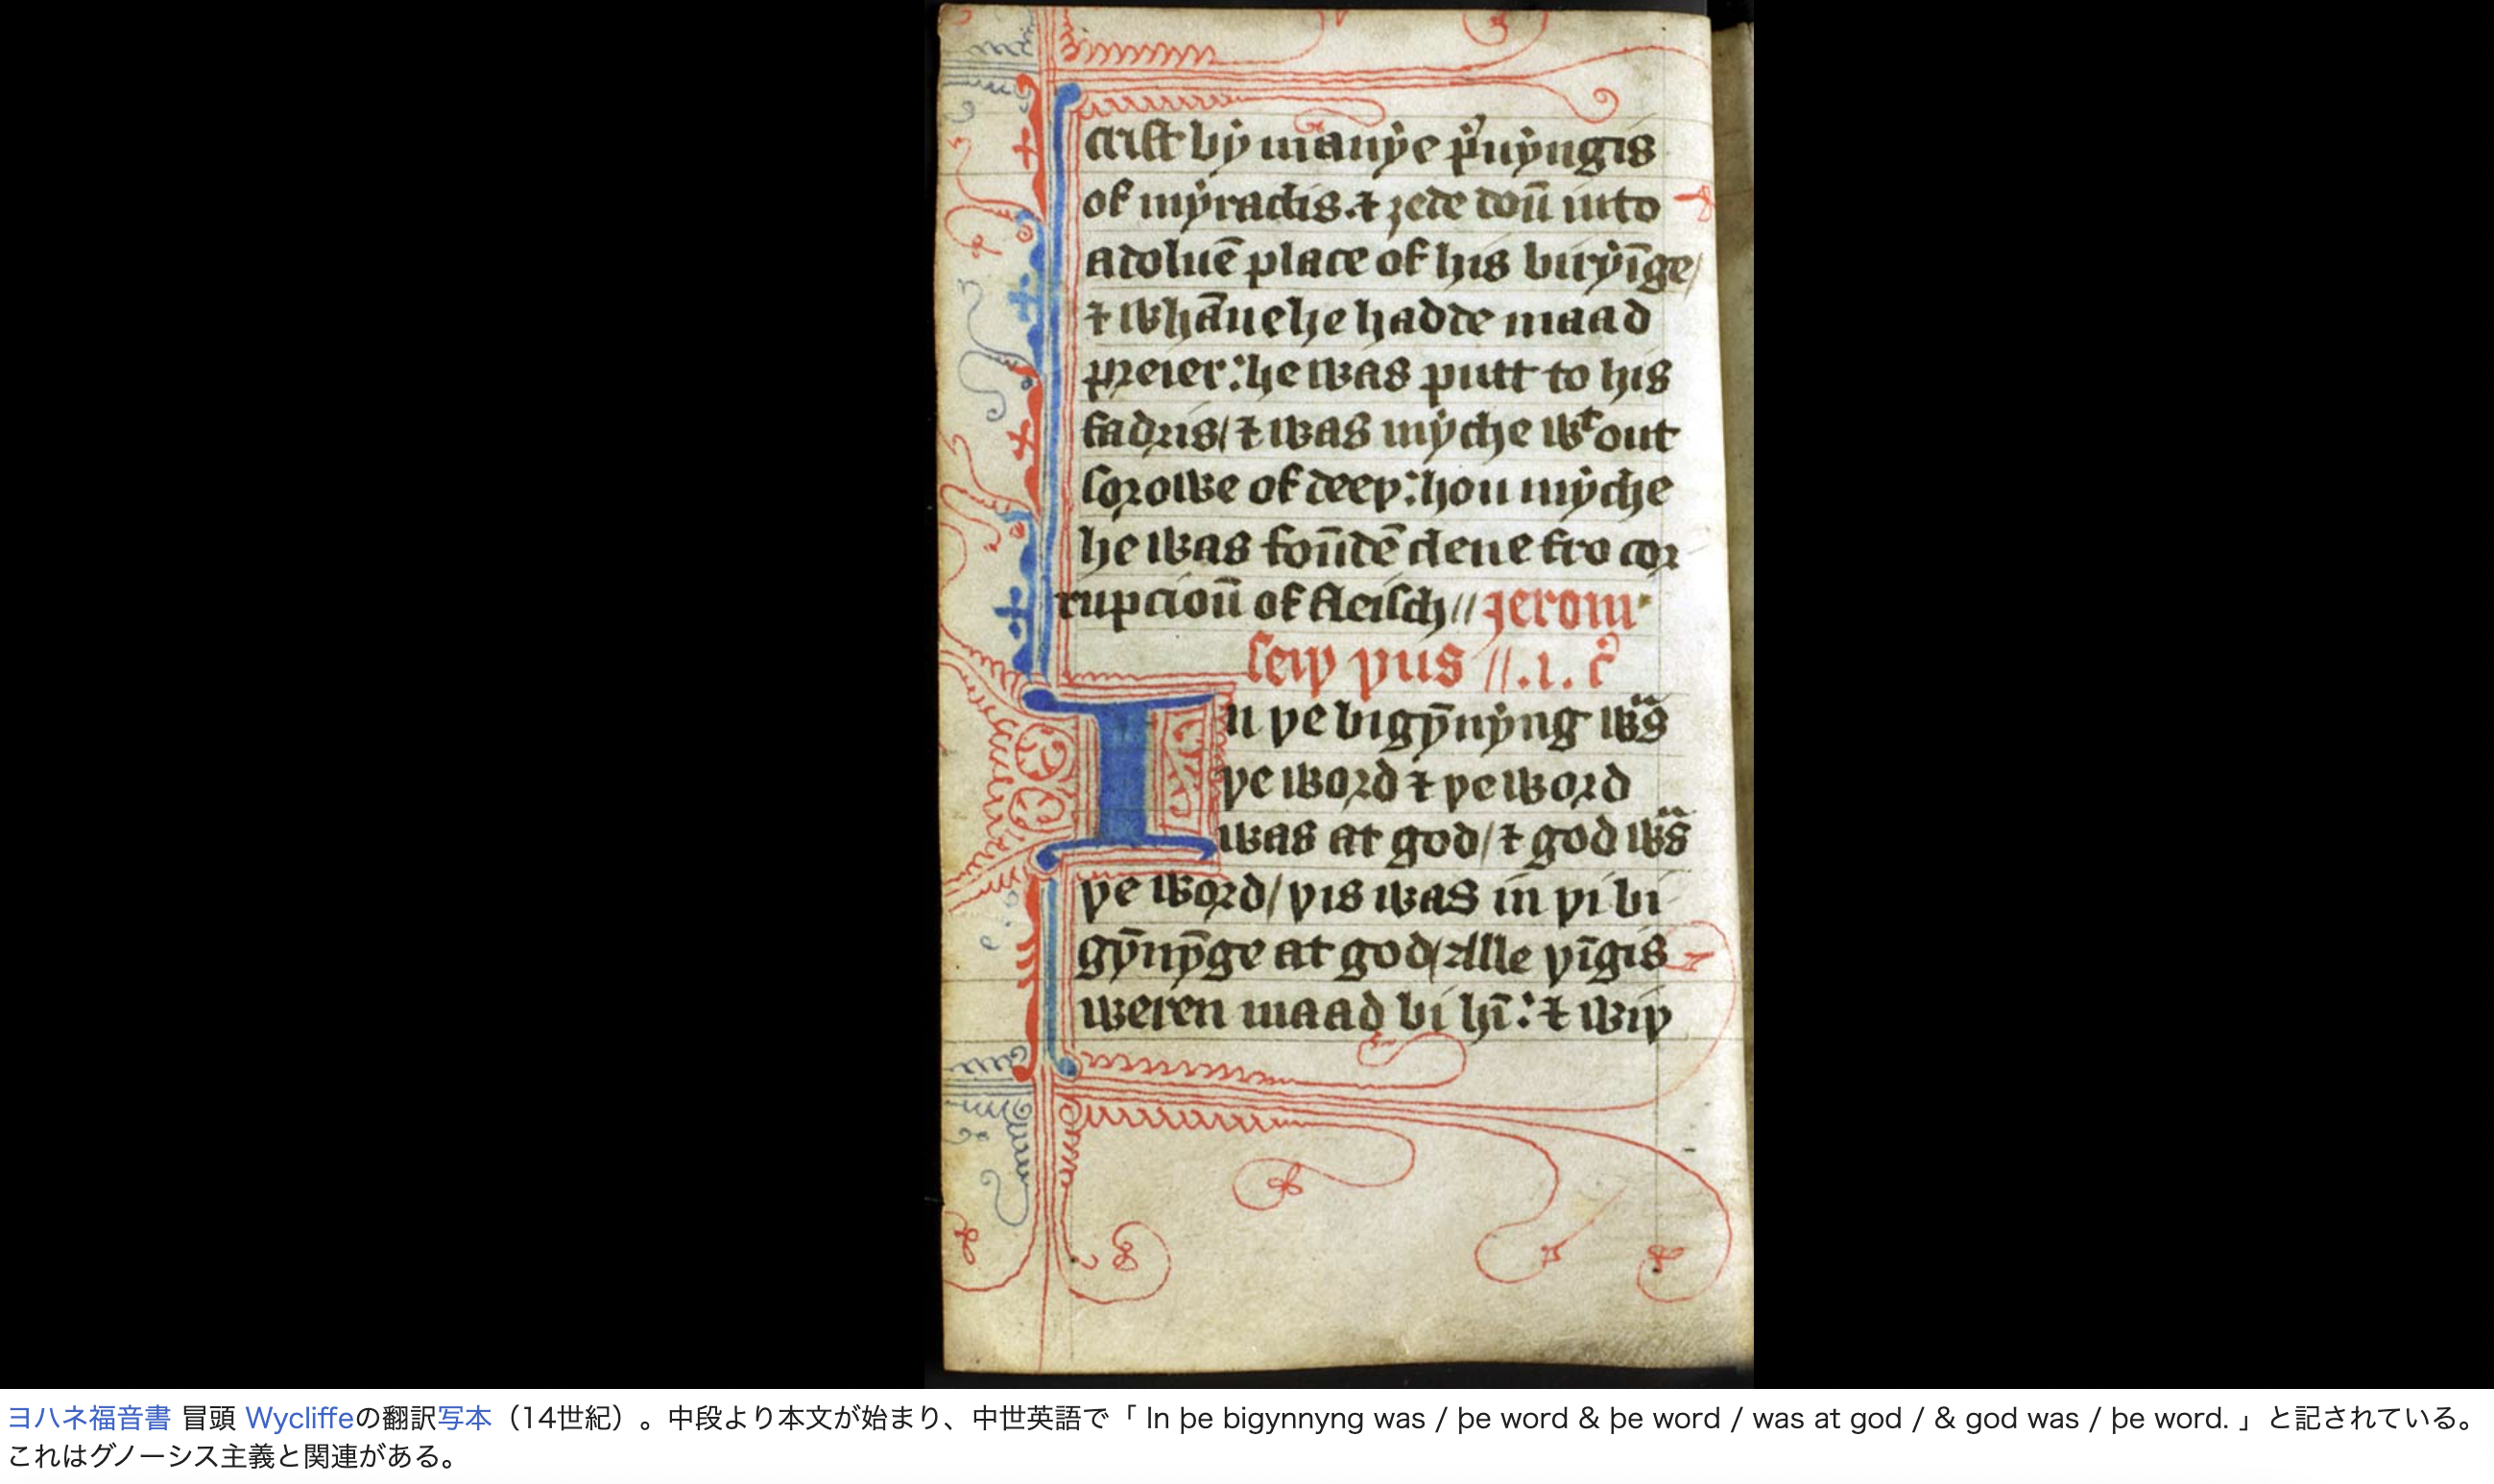 crist bẏ manẏe p̄uẏngis
of mẏraclis.⁊ ȝede doū into
a doluē place of his buryīge/
⁊ whāne he hadde maad
preier:he was putt to his
fadris/⁊ was mẏche wᵗout
sorowe of deeþ:hou mẏche
he was foūdē clene fro cor
rupcioū of fleisch//Jerom
seiþ þus //.1. c̄
In þe bigyn̄ẏng wᵃs
þe word ⁊ þe word
was at god/⁊ god wᵃs
þe word/þis was in þi bi
gȳnȳge at god/Alle þīgis
weren maad bi hī:⁊ wiþ
ヨハネ福音書 冒頭 Wycliffeの翻訳写本（14世紀）。中段より本文が始まり、中世英語で「 In þe bigynnyng was / þe word & þe word / was at god / & god was / þe word. 」と記されている。
これはグノーシス主義と関連がある。